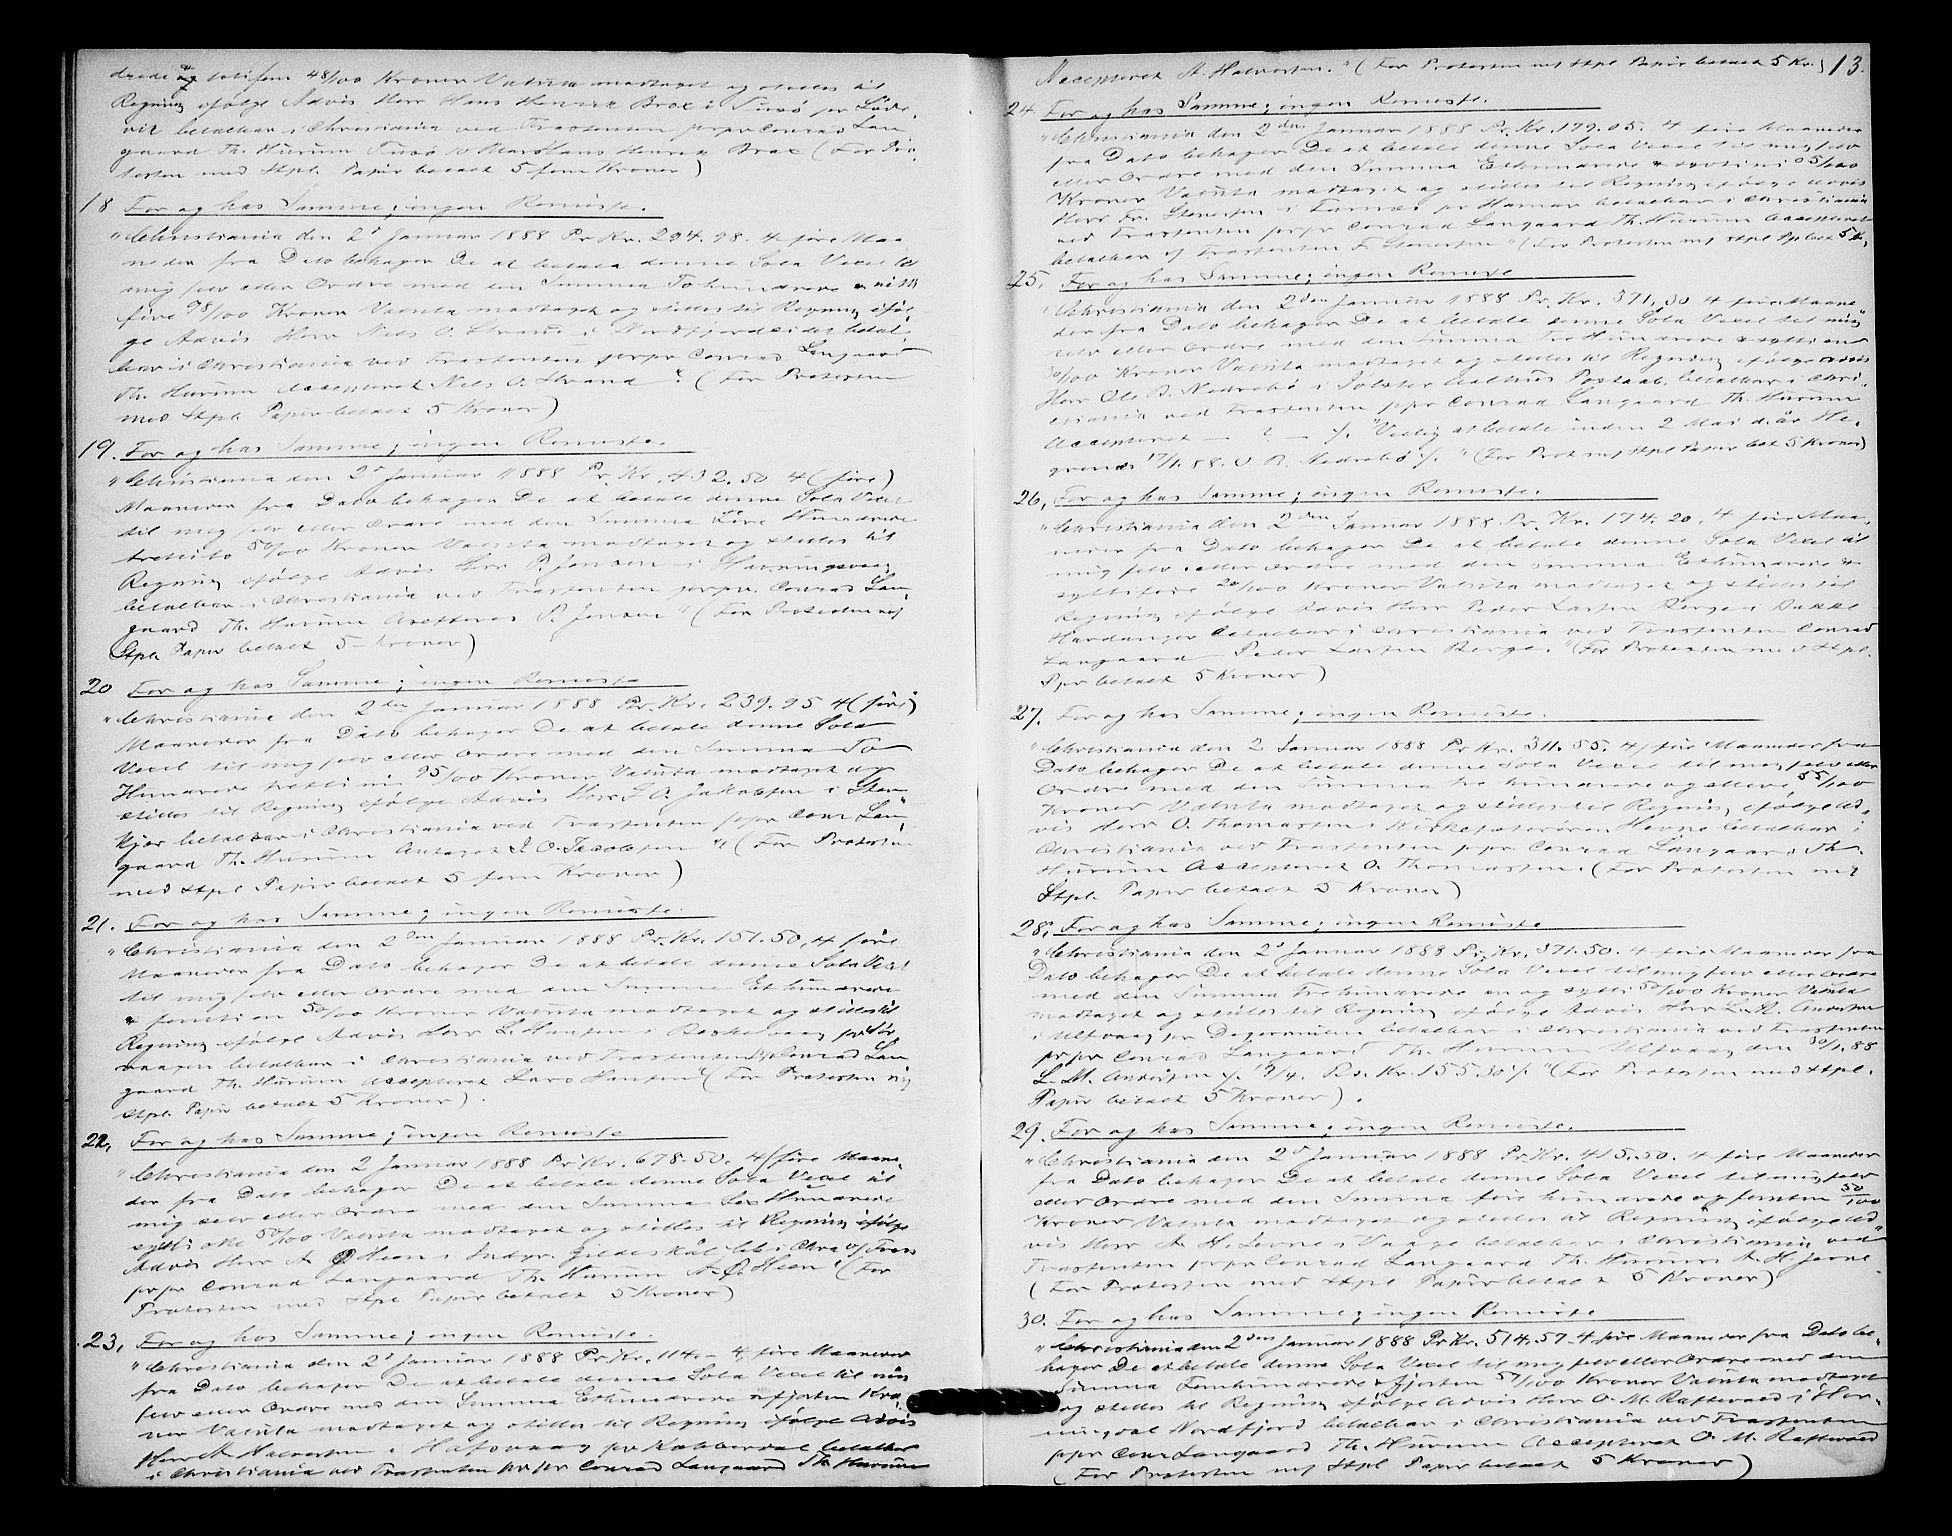 drede og totifem 48/100 Kroner Valuta modtaget og stilles til
Regning ifølge Advis Herr Hans Henrik Brox i Tusö pr Löds-
vik betalbar i Christiania ved Trasenten prpr Conrad Lan-
gaard Th. Hurum Hans Henrik Brox (For Pro-
testen med Stpl. Papir betalt 5 fem Kroner)
18 For og hos Samme; ingen Remisse.
"Christiania den 2d Januar 1888 Pr. Kr. 294.98. 4 fire Maa-
neder fra Dato behager De at betale denne Sola Vexel til
mig selv eller Ordre med den Summa Tohundrede & nitti
fire 98/100 Kroner Valuta modtaget og stilles til Regning iføl-
ge Advis Herr Nils O. Strand i Nordfjordeidet betal-
bar i Christiania ved Trasenten prpr Conrad Langaard
Th. Hurum Accepteret Nils O. Strand". (For Protesten
med Stpl. Papir betalt 5 Kroner)
19. For og hos Samme; ingen Remisse.
"Christiania den 2d Januar 1888 Pr. Kr. 432.50 4 (fire)
Maaneder fra Dato behager De at betale denne Sola Vexel
til mig selv eller Ordre med den Summa Fire Hundrede
trettito 50/100 Kroner Valuta modtaget og stilles til
Regning ifølge Advis Herr P. Jensen i Havningsvaag
betalbar i Christiania ved Trasenten prpr. Conrad Lan-
gaard Th. Hurum P. Jensen" (For Protesten m/
Stpl. Papir betalt 5 Kroner)
20 For og hos Samme; ingen Remisse
"Christiania den 2den Januar 1888 Pr. Kr. 239.95 4 (fire)
Maaneder fra Dato behager De at betale denne Sola
Vexel til mig selv eller Ordre med den Summa To
Hundrede trettini 95/100 Kroner Valuta modtaget og
stilles til Regning ifølge Advis Herr I. O. Jakobsen i Sten-
kjær betalbar i Christiania ved Trasenten prpr Conr Lan-
gaard Th. Hurum Antaget I. O. Jacobsen" (For Protesten
med Stpl Papir betalt 5 fem Kroner)
21. For og hos Samme; ingen Remisse.
"Christiania den 2den Januar 1888 Pr. Kr. 151.50, 4 fire
Maaneder fra Dato behager De at betale denne Sola Vexel
til mig selv eller Ordre med den Summa Et hundrede
& femti en 50/100 Kroner Valuta modtaget og stilles til
Regning ifølge Advis Herr L. Hansen i
vaagen betalbar i Christiania ved Trasenten prpr Conrad Lan-
gaard Th. Hurum Accepteret Lars Hansen" (For Protesten m/
Stpl. Papir betalt 5 Kroner).
22. For og hos Samme; ingen Remisse
"Christiania den 2 Januar 1888 Pr Kr. 678.50. 4/ fire Maane-
der fra Dato behager De at betale denne Sola Vexel til
mig selv eller Ordre med den Summa Sex Hundrede
sytti otte 50/100 Valuta modtaget og stilles til Regning ifølge
Advis Herr A. O. Heen i Indyr. Gildeskål btb i Chra v/ Tras
prpr Conrad Langaard Th. Hurum A. O. Heen" (For
Protesten med Stpl Papir betalt 5 Kroner)
23, For og hos Samme; ingen Remisse.
"Christiania den 2d Januar 1888 Pr Kr. 114.- 4, fire Maaneder
fra Dato behager De at betale denne Sola Vexel til mig
selv eller Ordre med den Summa Ethundrede & fjorten Kro-
ner Valuta modtaget og stilles til Regning ifølge Advis
Herr A Halvorsen i Hafsvaag pr Kobberdal betalbar
i Christiania ved Trasenten prpr Conrad Langaard Th Hurum
Accepteret A. Halvorsen." (For Protesten m/ Stpl Papir betalt 5 Kr.) 13.
24. For og hos Samme; ingen Remisse.
"Christiania den 2den Januar 1888 Pr. Kr. 179.05. 4 fire Maaneder
fra Dato behager De at betale denne Sola Vexel til mig selv
eller Ordre med den Summa Ethundrede & syttini 05/100
Kroner Valuta modtaget og stilles til Regning ifølge Advis
Herr Fr. Stenersen i Furnæs pr Hamar betalbar i Christiania
ved Trasenten prpr Conrad Langaard Th. Hurum Accepteret
betalbar af Trasenten F. Stenersen" (For Protesten m/ Stpl Pp betalt 5 Kr.
25. For og hos Samme; ingen Remisse
"Christiania den 2den Januar 1888 Pr. Kr. 371,30 4 fire Maane-
der fra Dato behager De at betale denne Sola Vexel til mig
selv eller Ordre med den Summa Tre Hundrede & sytti en
30/100 Kroner Valuta modtaget og stilles til Regning ifølge Advis
Herr Ole R. Nedrebö i Jölster Postaab. betalbar i Chri-
stiania ved Trasenten prpr Conrad Langaard Th. Hurum
Accepteret — ? — ./. "Villig at betale inden 2 Mai d: år He-
grenæs 17/1. 88. O R. Nedrebö ./. " (For Prot m/ Stpl Papir bet 5 Kroner)
26, For og hos Samme; ingen Remisse.
"Christiania den 2den Januar 1888 Pr. Kr. 174.20, 4 fire Maa-
neder fra Dato behager De at betale denne Sola Vexel til
mig selv eller Ordre med den Summa Ethundrede &
syttifire 20/100 Kroner Valuta modtaget og stilles til
Regning ifølge Advis Herr Peder Larsen Berge i Bakke
Hardanger betalbar i Christiania ved Trasenten Conrad
Langaard Peder Larsen Berge." (For Protesten med Stpl.
Ppr betalt 5 Kroner)
27. For og hos Samme; ingen Remisse.
"Christiania den 2 Januar 1888 Pr Kr. 311.55. 4/ fire Maaneder fra
Dato behager De at betale denne Sola Vexel til mig selv eller
Ordre med den Summa tre hundrede og elleve 55/100
Kroner Valuta modtaget og stilles til Regning ifølge Ad-
vis Herr O. Thomassen i Kirkesæterören Hevne betalbar i
Christiania ved Trasenten prpr. Conrad Langaard Th.
Hurum Accepteret O. Thomassen. (For Protesten m/
Stpl. Papir betalt 5 Kroner)
28. For og hos Samme; ingen Remisse
"Christiania den 2d Januar 1888 Pr. Kr. 371.50. 4 fire Maaneder fra
Dato behager De at betale denne Sola Vexel til mig selv eller Ordre
med den Summa Trehundrede en og sytti 50/100 Kroner Valuta
modtaget og stilles til Regning ifølge Advis Herr L. M. Andersen
i Ulfvaag pr Dypermulen betalbar i Christiania ved Trasenten
prpr Conrad Langaard Th. Hurum Ulfvaag den 30/1. 88
L. M. Andersen ./. 19/4. Rs. Kr. 155.50 ./. " (For Protesten med Stpl.
Papir betalt 5 Kroner).
29. For og hos Samme; ingen Remisse.
"Christiania den 2d Januar 1888 Pr Kr. 415.50. 4 fire Maaneder
fra Dato behager De at betale denne Sola Vexel til mig selv
eller Ordre med den Summa fire hundrede og femten 50/100
Kroner Valuta modtaget og stilles til Regning ifølge Ad-
vis Herr A. H. Jevne i Vaage betalbar i Christiania ved
Trasenten prpr Conrad Langaard Th. Hurum A. H Jevne
(For Protesten med Stpl Papir betalt 5 Kroner)
30. For og hos Samme; ingen Remisse
"Christiania den 2den Januar 1888 Pr Kr. 514.57 - 4 fire Maaneder fra Dato be-
hager De at betale denne Sola Vexel til mig selv eller Ordre med den
Summa Femhundrede & fjorten 57/100 Kroner Valuta modtaget
og stilles til Regning ifølge Advis Herr O. M. Raftevold i Hor-
ningdal Nordfjord betalbar i Christiania ved Trasenten
prpr Conr Langaard Th. Hurum Accepteret O. M. Raftevold
(For Protesten m/ Stpl Papir betalt 5 Kroner)